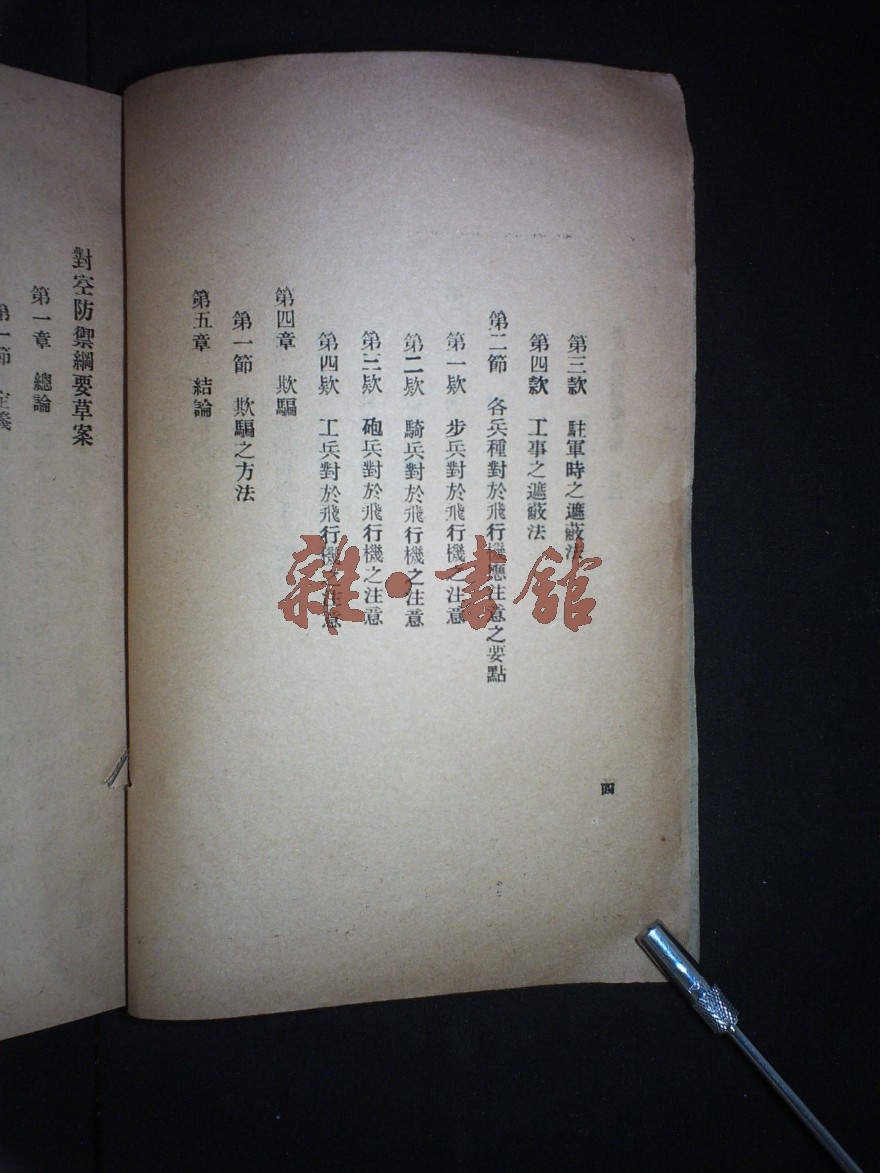 第三款　駐軍時之遮蔽法
第四款　工事之遮蔽法
第二節　各兵種對於飛行機應注意之要點
第一欵　步兵對於飛行機之注意
第二欵　騎兵對於飛行機之注意
第三欵　砲兵對於飛行機之注意
第四欵　工兵對於飛行機之注意
第四章　欺騙
第一節　欺騙之方法
第五章　結論
四
對空防禦綱要草案
第一章　總論
第一節　定義
雜·書館